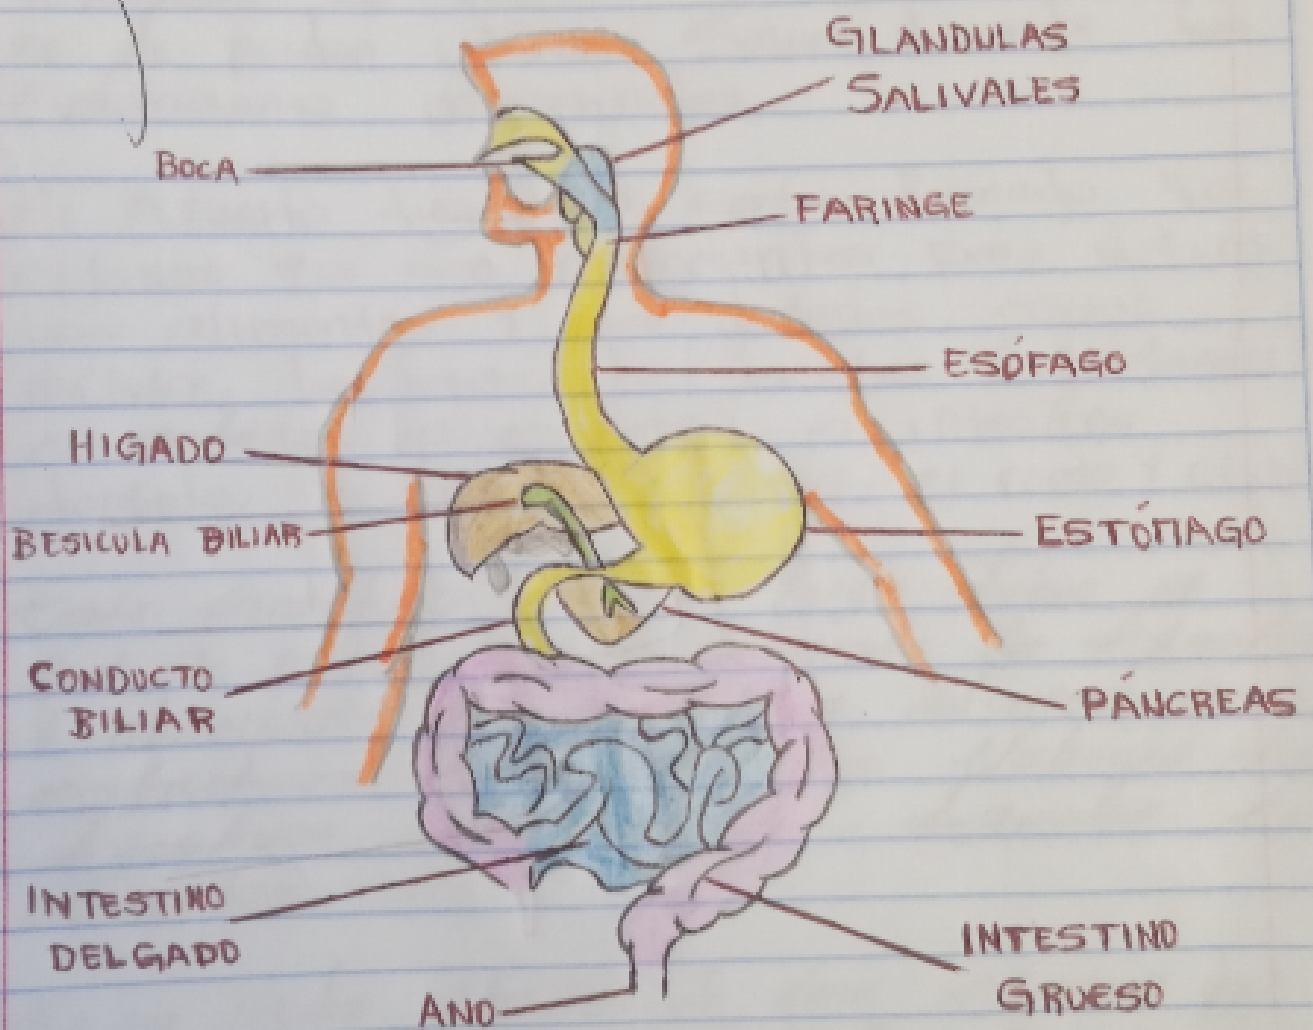 GLANDULAS
SALIVALES
BOCA
FARINGE
ESÓFAGO
HIGADO
BESICULA BILIAR
ESTÓMAGO
CONDUCTO
BILIAR
PÁNCREAS
INTESTINO
DELGADO
INTESTINO
GRUESO
ANO